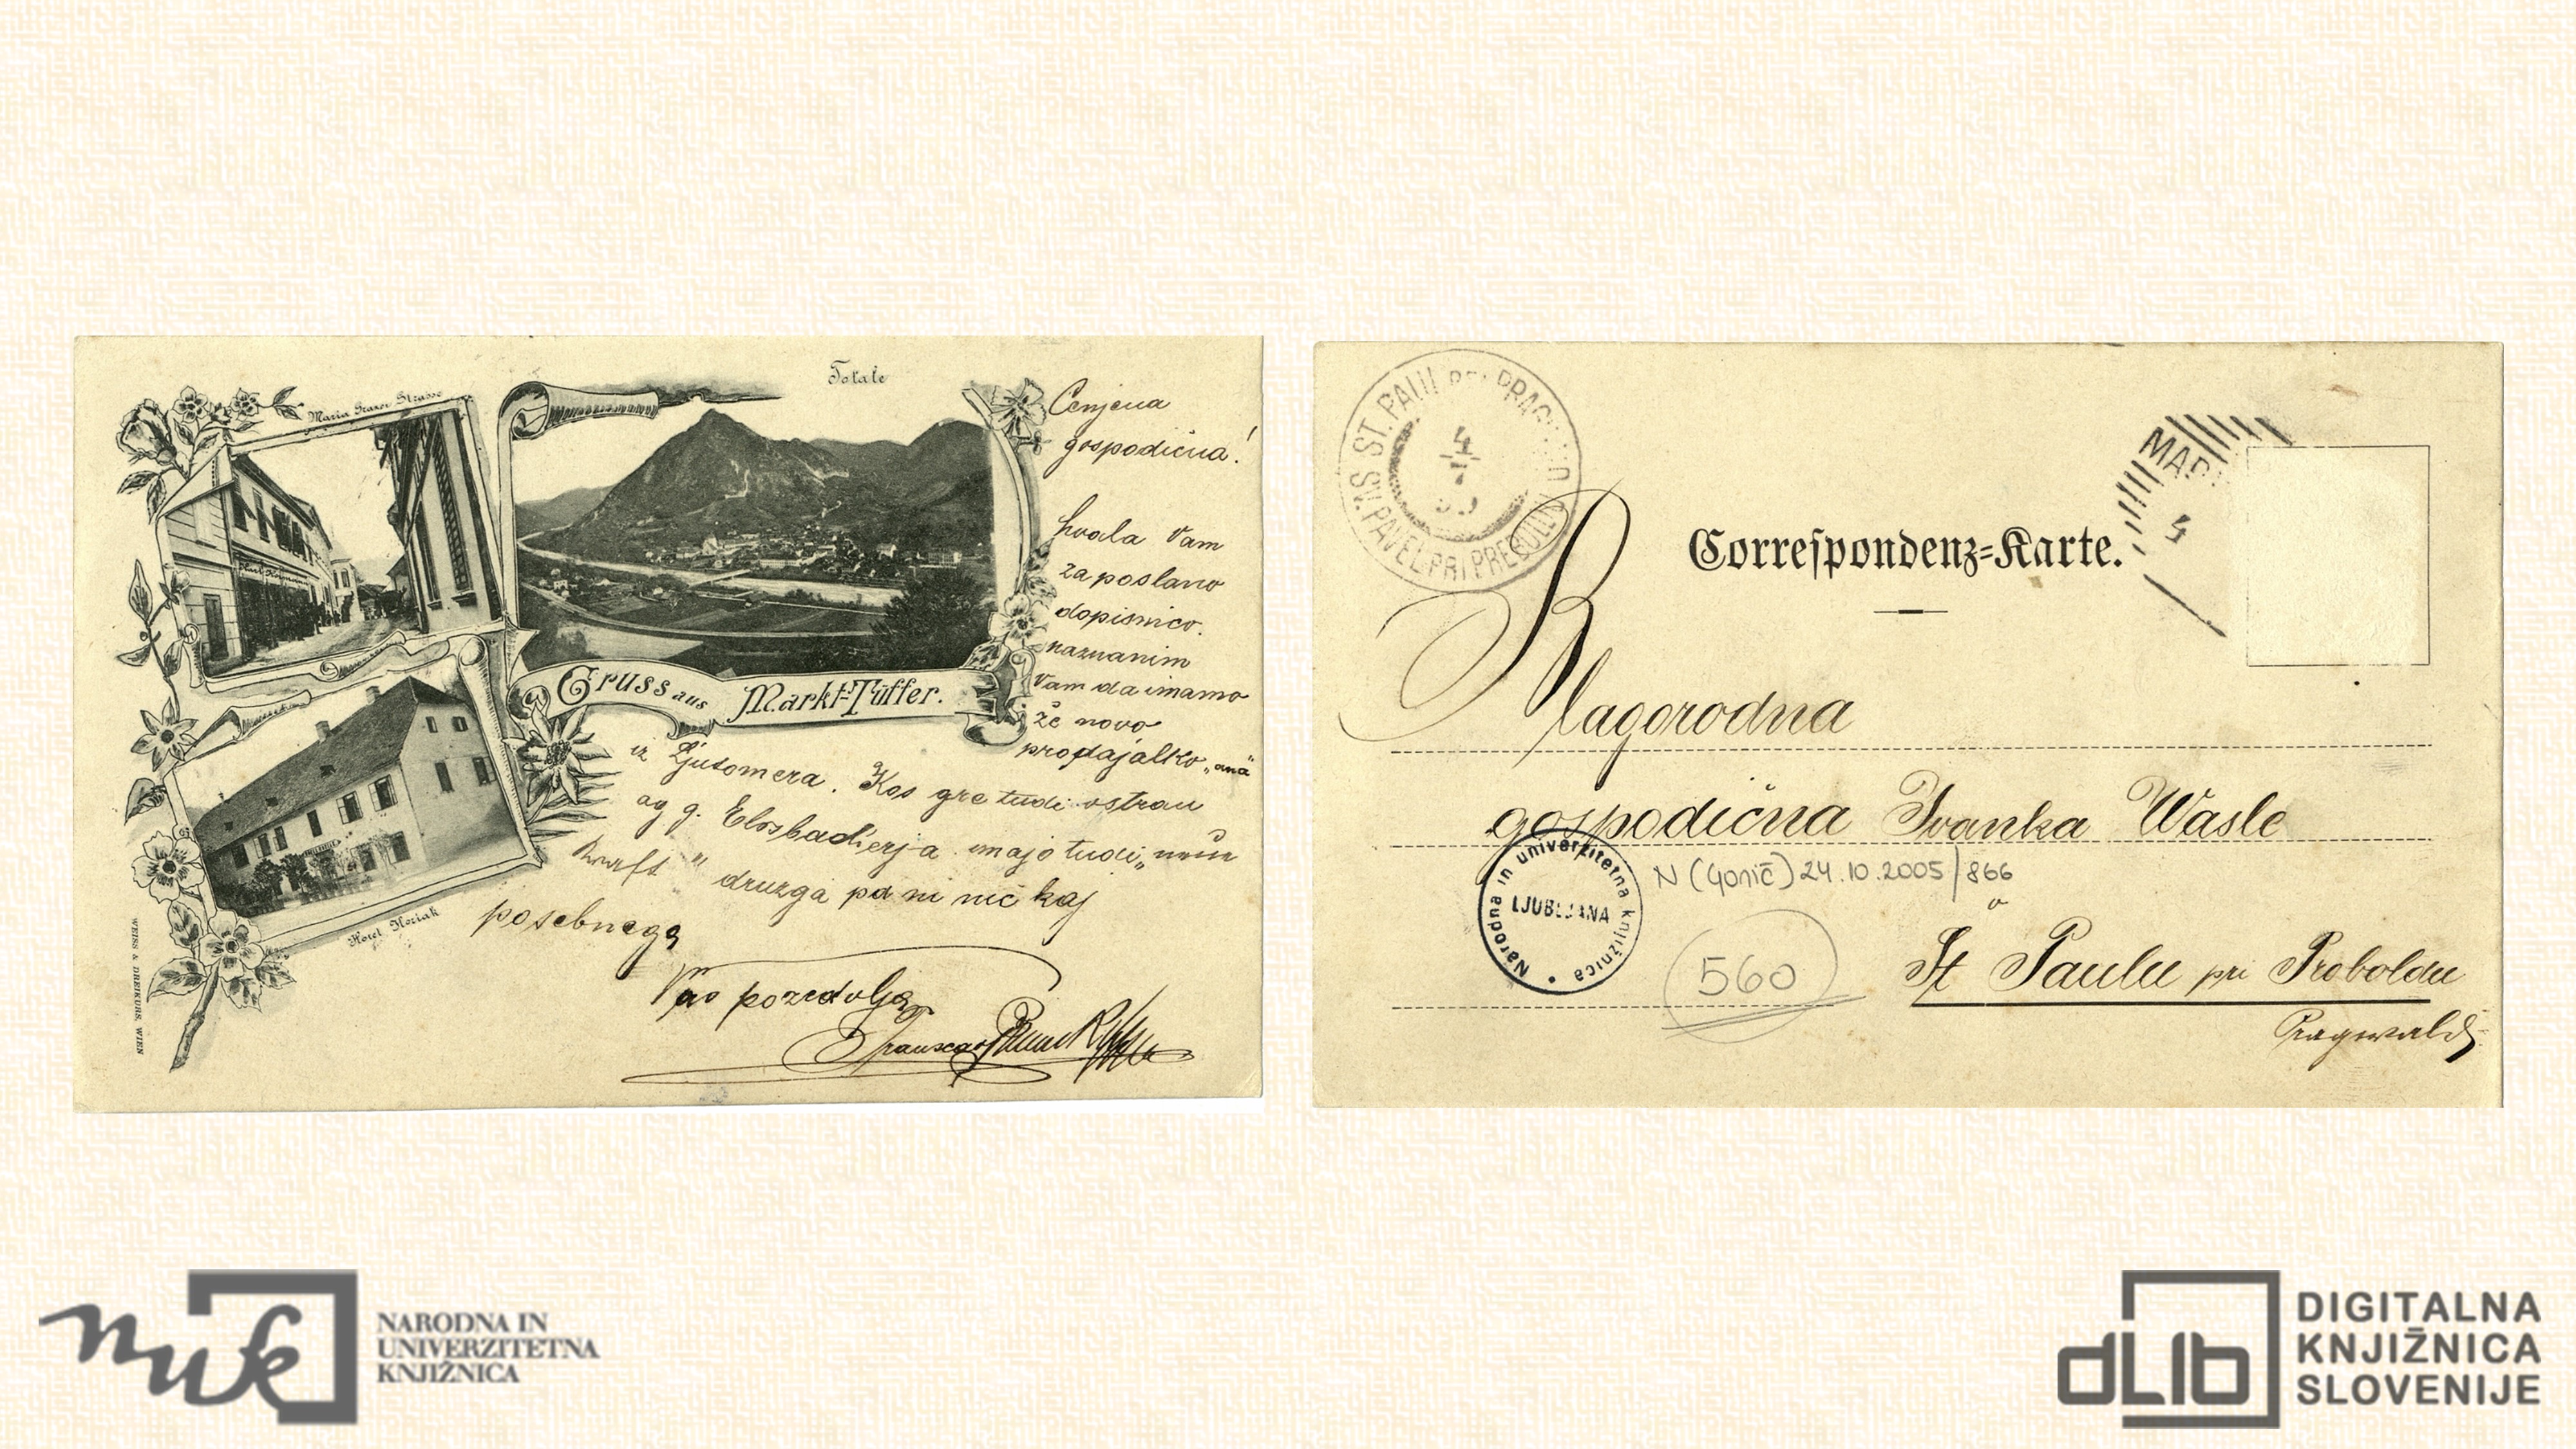 Totale
Maria Grazer Strasse
Gruss aus Markt-Tüffer.
Hotel Horiak
WEISS & DREIKURS, WIEN
Cenjena
gospodična!
hvala Vam
za poslano
dopisnico.
naznanim
Vam da imamo
že novo
prodajalko „ana"
iz Ljutomera. Kos gre tudi ostran
g. imajo tudi „
kraft" druzga pa ni nič kaj
posebnega
Vas pozdvlja
ST. PAUL bei PRAG
SV. PAVEL PRI PREBOLDU
4
I
MAR
4
Correspondenz-Karte.
Blagorodna
gospodična Ivanka Wasle
N (Gonič) 24.10.2005/866
Narodna in univerzitetna knjižnica •
LJUBLJANA
560
St Paulu pri Preboldu
Pragwald
nuk
NARODNA IN
UNIVERZITETNA
KNJIŽNICA
dLib
DIGITALNA
KNJIŽNICA
SLOVENIJE